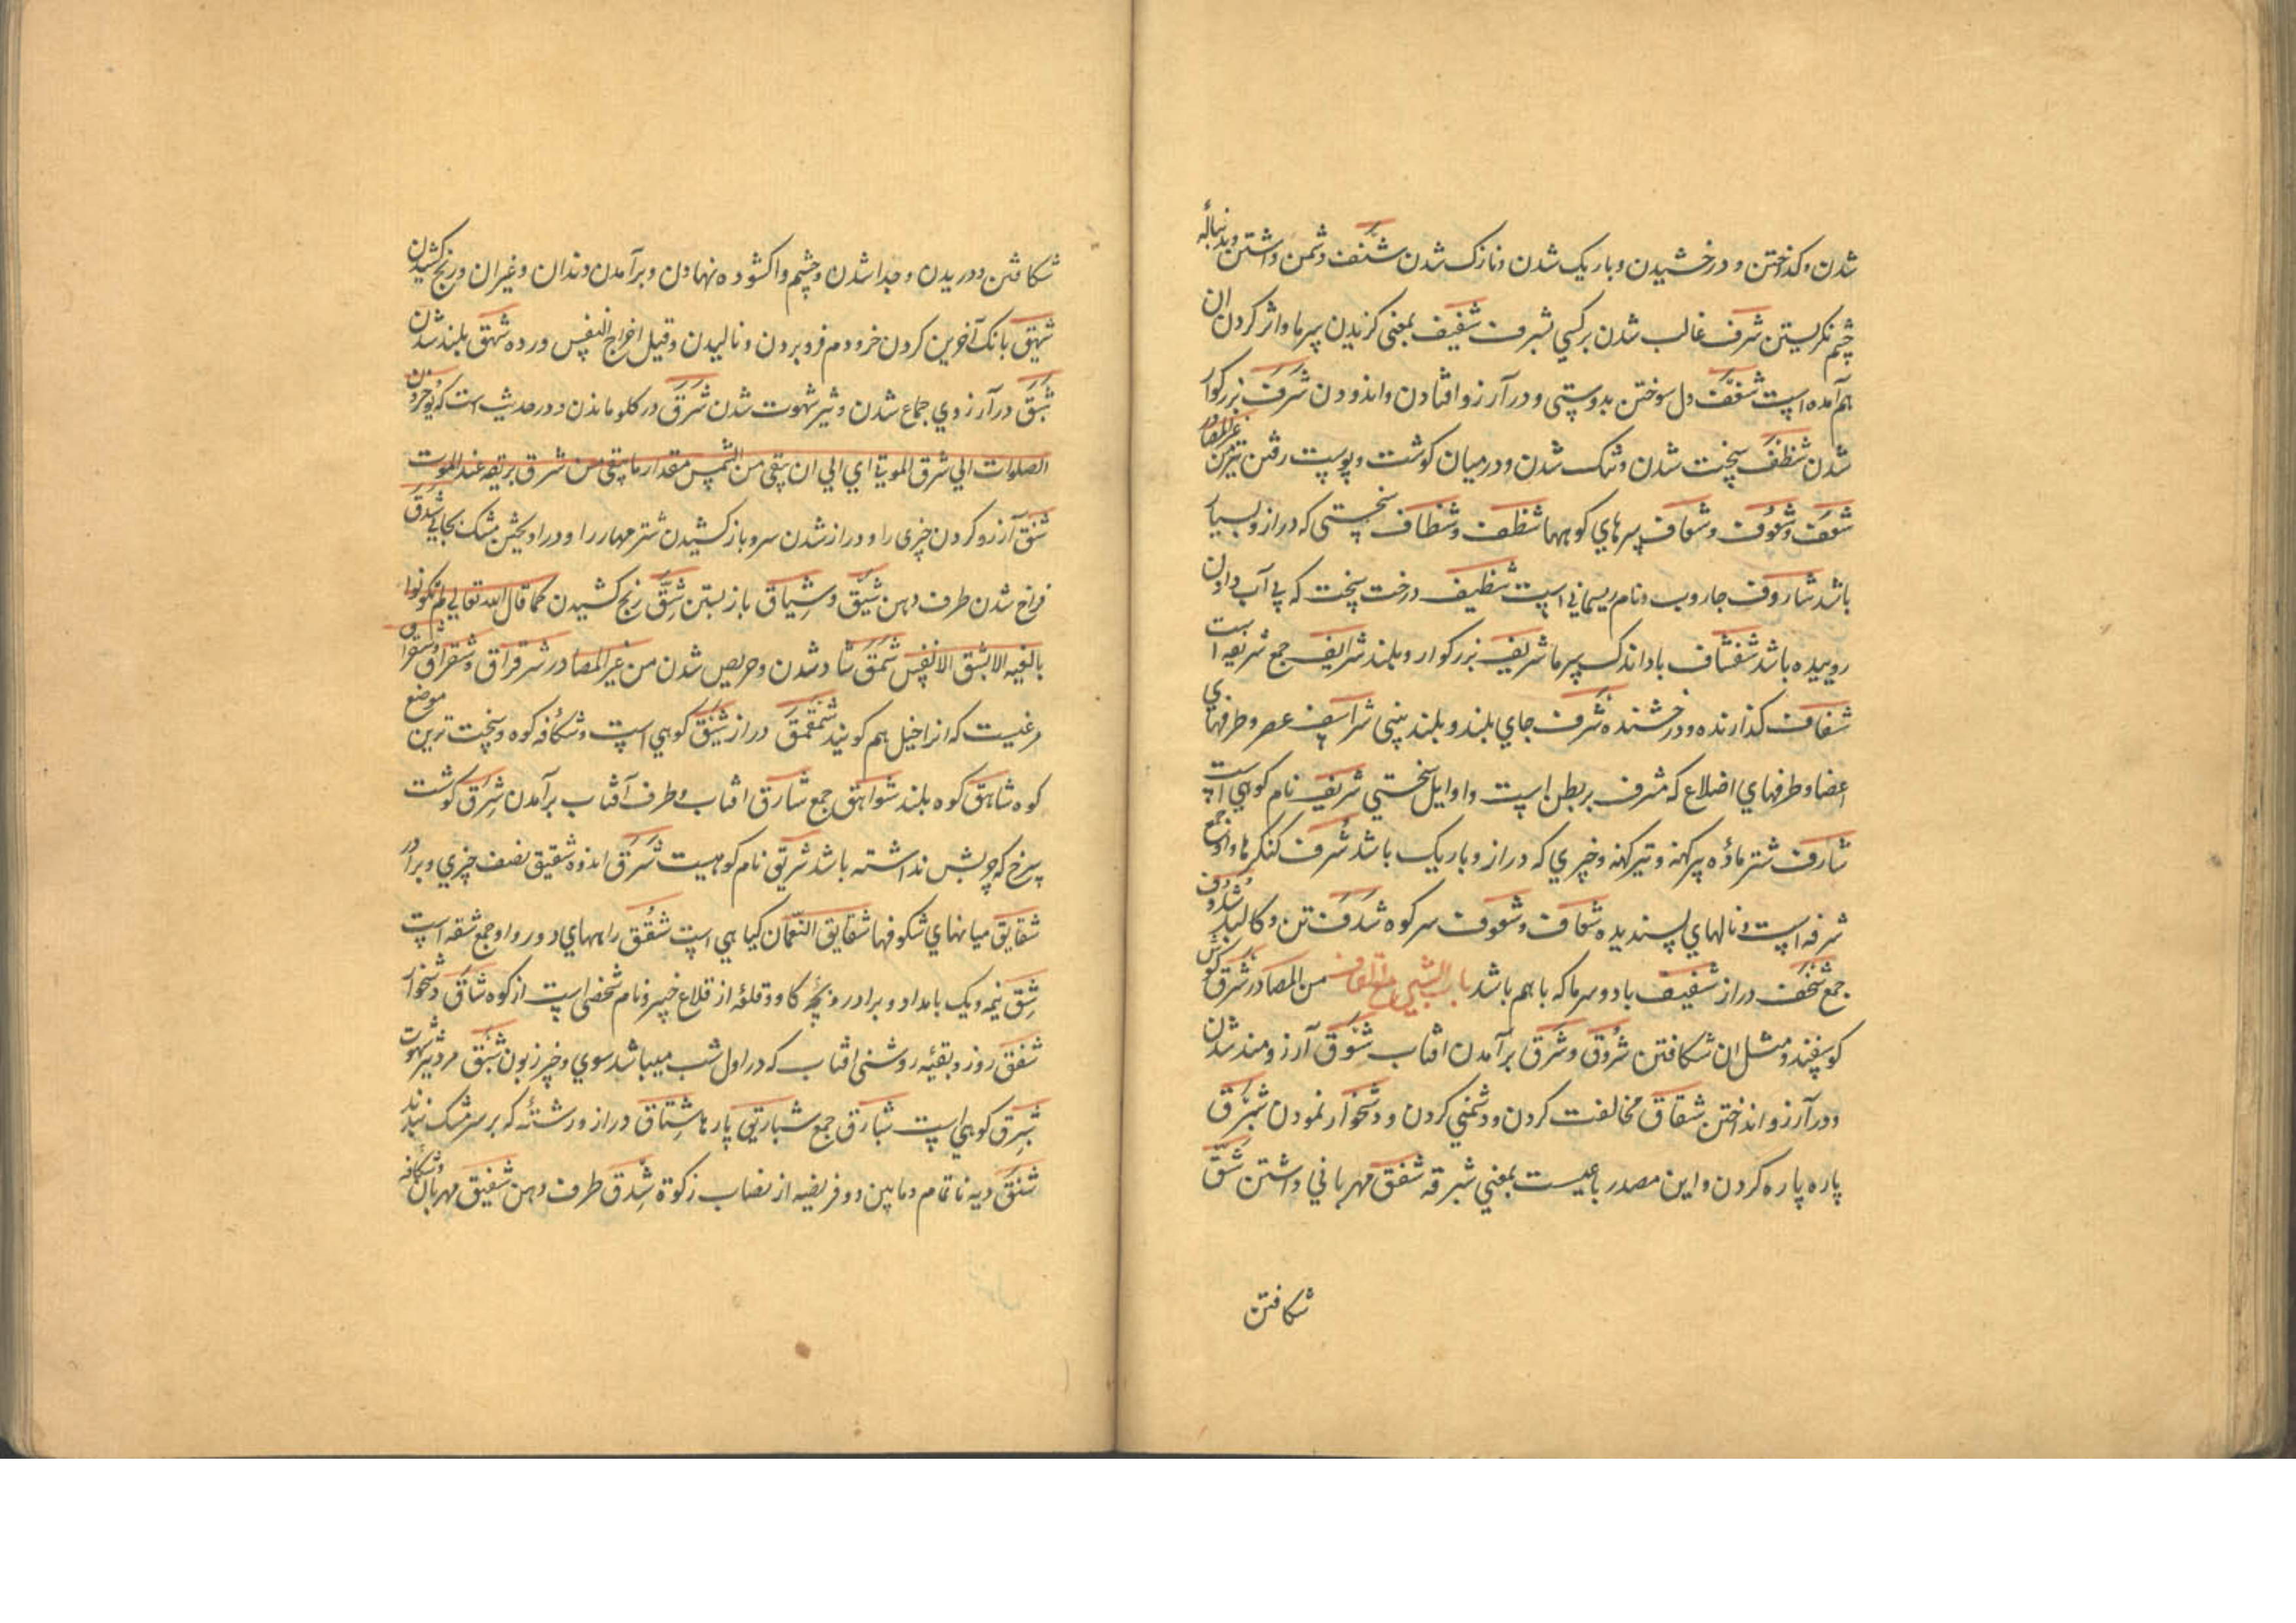 شدن و کداختن و درخشیدن و باریک شدن و نازک شدن شنف دشمن داشتن و بدنباله
چشم نکریستن شرف غالب شدن برکسی بشرف شفیف بمعنی کزیدن سرما و اثر کردن ان
هم آمده است شعف دل سوختن بدوستی و در آرزو افتادن و اندودن شرف بزرکوار
شدن شظف سخت شدن و تنک شدن و درمیان کوشت و پوست رفتن تیز من غیرالمصادر
شعف و شعوف و شعاف سرهای کوهها شظف و شظاف سختی که دراز و بسیار
باشد شاروف جاروب و نام ریسمانی است شظیف درخت سخت که بی آب دادن
روییده باشد شفشاف باد اندک سرما شریف بزرکوار و بلند شرایف جمع شریفه است
شفاف کذارنده و درخشنده شرف جای بلند و بلند بینی شراسیف عصر و طرفهای
اعضا و طرفهای اضلاع که مشرف بربطن است و اوایل سختی شریف نام کوهی است
شارف شتر ماده پیر کهنه و تیر کهنه و چیزی که دراز و باریک باشد شرف کنکرها و او جمع
شرفه است و نالهای پسندیده شعاف و شعوف سر کوه شدف تن و کالبد شدوف
جمع شخف دراز شفیف باد و سرما که باهم باشد باب الشین مع القاف من المصادر شرق کوش
کوسفند و مثل ان شکافتن شروق و شرق برآمدن افتاب شوق آرزومند شدن
و در آرزو انداختن شقاق مخالفت کردن و دشمنی کردن و دشخوار نمودن شبرق
پاره پاره کردن و این مصدر رباعیست بمعنی شبرقه شفق مهربانی داشتن شق
شکافتن
شکافتن و دریدن و جدا شدن و چشم واکشوده نهادن و برآمدن دندان و غیران و رنج کشیدن
شهیق بانک آخرین کردن خر و دم فرو بردن و نالیدن و قیل اخراج النفس و رده شهق بلند شدن
شبق در آرزوی جماع شدن و تیز شهوت شدن شرق در کلو ماندن و در حدیث است که یؤخرون
الصلوات الی شرق الموتی ای الی ان یبقی من الشمس مقدار ما یبقی من شرق بریقه عند الموت
شنق آرزو کردن چیزی را و دراز شدن سر و باز کشیدن شتر مهار را و دراویختن مشک بجایی شدق
فراخ شدن طرف دهن شیق و شیاق باز بستن شق رنج کشیدن کما قال الله تعالی لم تکونوا
بالغیه الا بشق الانفس شمق شاد شدن و حریص شدن من غیرالمصادر شرقراق و شقراق و شقراق
مرغیست که انرا خیل هم کویند شمقمق دراز شیق کوهی است و شکافه کوه و سخت ترین موضع
کوه شاهق کوه بلند شواهق جمع شارق افتاب و طرف آفتاب برآمدن شرق کوشت
سرخ که چربش نداشته باشد شریق نام کوهیست شرق اندوه شقیق نصف چیزی و برادر
شقایق میانهای شکوفها شقایق النعمان کیاهی است شقق راههای دور و او جمع شقه است
شق نیمه و یک بامداد و برادر و بچه کاو و قلعه از قلاع خیبر و نام شخصی است از کوه شاق دشخوار
شفق روز و بقیه روشنی افتاب که در اول شب میباشد سوی و چیز زبون شبق مرد تیز شهوت
شبرق کوهی است شبارق جمع شباریق پارها شناق دراز و رشته که بر سر مشک بندند
شنق دیه ناتمام و مابین دو فریضه از نصاب زکوة شدق طرف دهن شفیق مهربان و شکافه